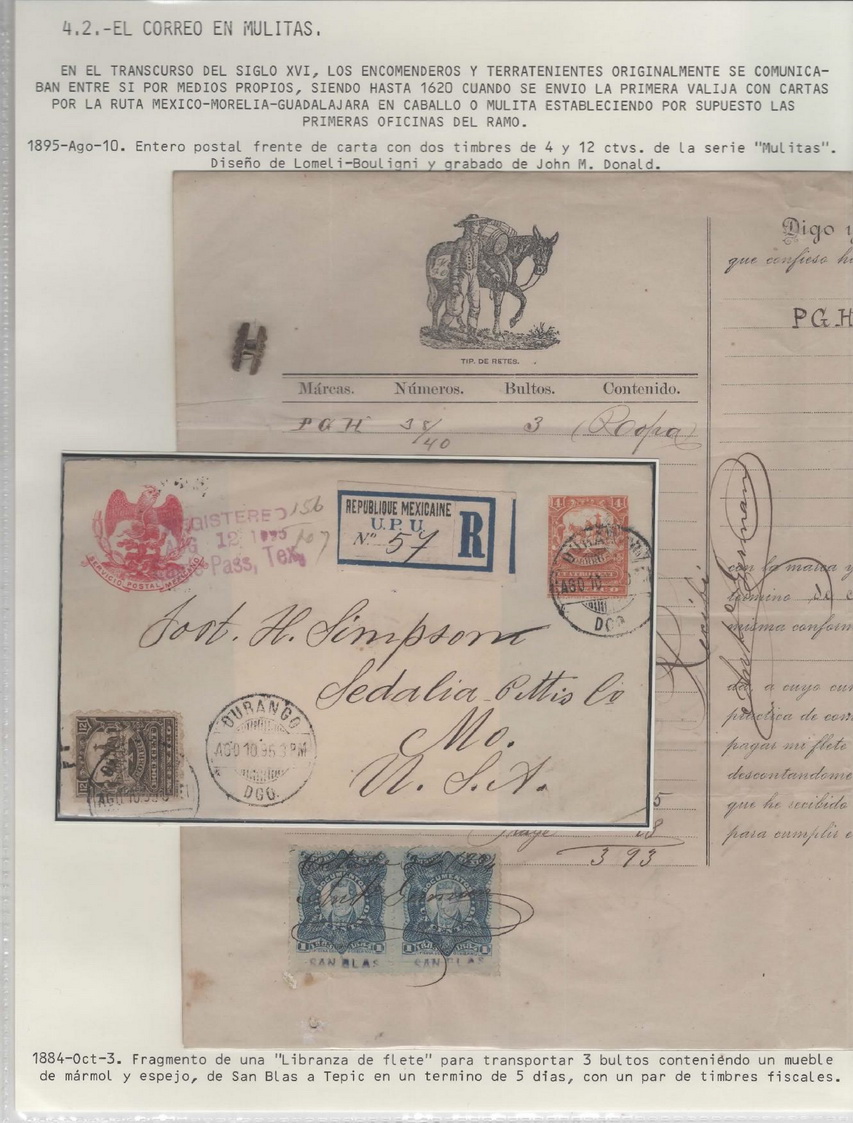 4.2.-EL CORREO EN MULITAS.
EN EL TRANSCURSO DEL SIGLO XVI, LOS ENCOMENDEROS Y TERRATENIENTES ORIGINALMENTE SE COMUNICA-
BAN ENTRE SI POR MEDIOS PROPIOS, SIENDO HASTA 1620 CUANDO SE ENVIO LA PRIMERA VALIJA CON CARTAS
POR LA RUTA MEXICO-MORELIA-GUADALAJARA EN CABALLO O MULITA ESTABLECIENDO POR SUPUESTO LAS
PRIMERAS OFICINAS DEL RAMO.
1895-Ago-10. Entero postal frente de carta con dos timbres de 4 y 12 ctvs. de la serie "Mulitas".
Diseño de Lomelí-Bouligni y grabado de John M. Donald.
TIP. DE RETES.
Márcas. Números. Bultos. Contenido.
PGH 38/40 3 (Ropa)
Digo y
que confieso h
PGH
REGISTERED
AUG 12 1895
Pass, Tex.
156
107
SERVICIO POSTAL MEXICANO
REPUBLIQUE MEXICAINE
U.P.U.
Nº 57
R
4
DURANGO
AGO 10
DGO.
Jost. H. Simpson
Sedalia Pettis Co
Mo.
U. S. A.
12
DURANGO
AGO 10.95 3 PM
DGO.
AGO 10.95
Recibí
con la marca y
término de
misma conform
da, a cuyo cum
práctica de com
pagar mi flete
descontandome
que he recibido
para cumplir
5
18
3 93
DOCUMENTOS
SAN BLAS SAN BLAS
1884-Oct-3. Fragmento de una "Libranza de flete" para transportar 3 bultos conteniéndo un mueble
de mármol y espejo, de San Blas a Tepic en un termino de 5 días, con un par de timbres fiscales.